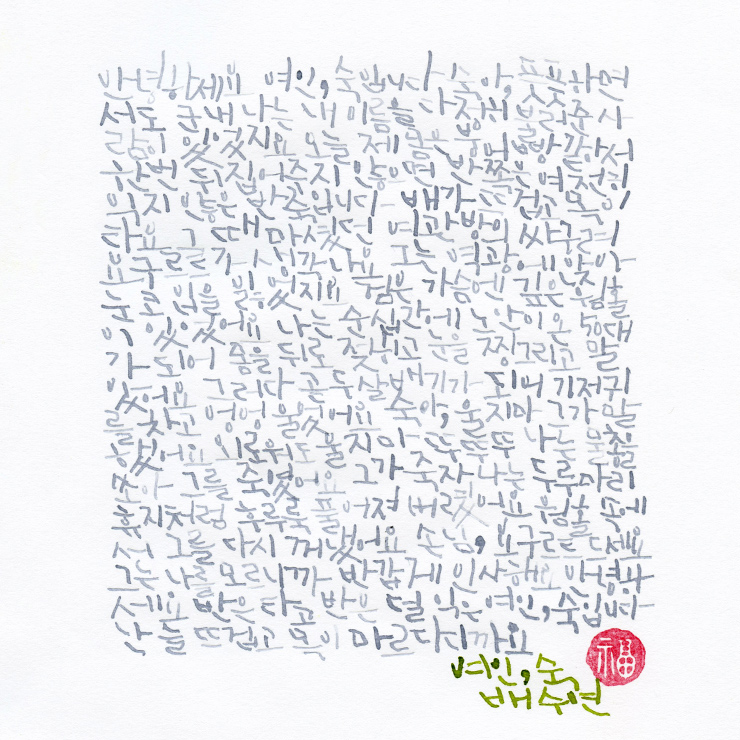 안녕하세요 여인, 숙입니다 숙아, 풋풋하면
서도 군내 나는 내 이름을 다정히 불러준 사
람이 있었지요 오늘 제 몸은 붕어빵 같아서
한번 뒤집어주지 않으면 반쪽은 여전히
익지 않는 반죽입니다 배가 뜨겁고 목이
타요 그때 마셨던 여관방의 싸구려
요구르트가 생각나요 그는 역광에 앉아
눈 코 입을 잃었지요 검은 가슴엔 깊은 웜홀
이 있었어요 나는 순식간에 노안이 온 50대
가 되어 몸을 뒤로 젖히고 눈을 찡그리고 말
았어요 그러다 곧 두 살배기가 되어 기저귀
를 차고 엉엉 울었어요 숙아, 울지마 그가 말
했어요 외로워도 울지마 뚜뚜뚜 나는 물총을
쏘아 그를 죽였어요 그가 죽자 나는 두루마리
휴지처럼 후루룩 풀어져 버렸어요 웜홀 속에
서 그를 다시 꺼냈어요 손님, 요구르트 드세요
그는 나를 모르니까 반갑게 인사해요 안녕하
세요 반은 타고 반은 덜 익은 여인, 숙입니다
난 늘 뜨겁고 목이 마르다니까요
여인, 숙
배수연
福